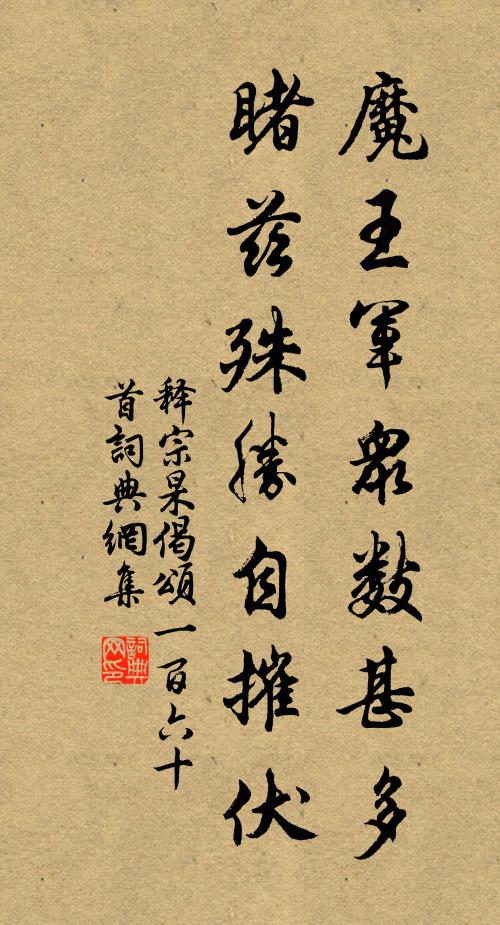 魔王軍眾數甚多
睹茲殊勝自摧伏
释宗杲偈頌一百六十
首詞典網集
詞典
网印